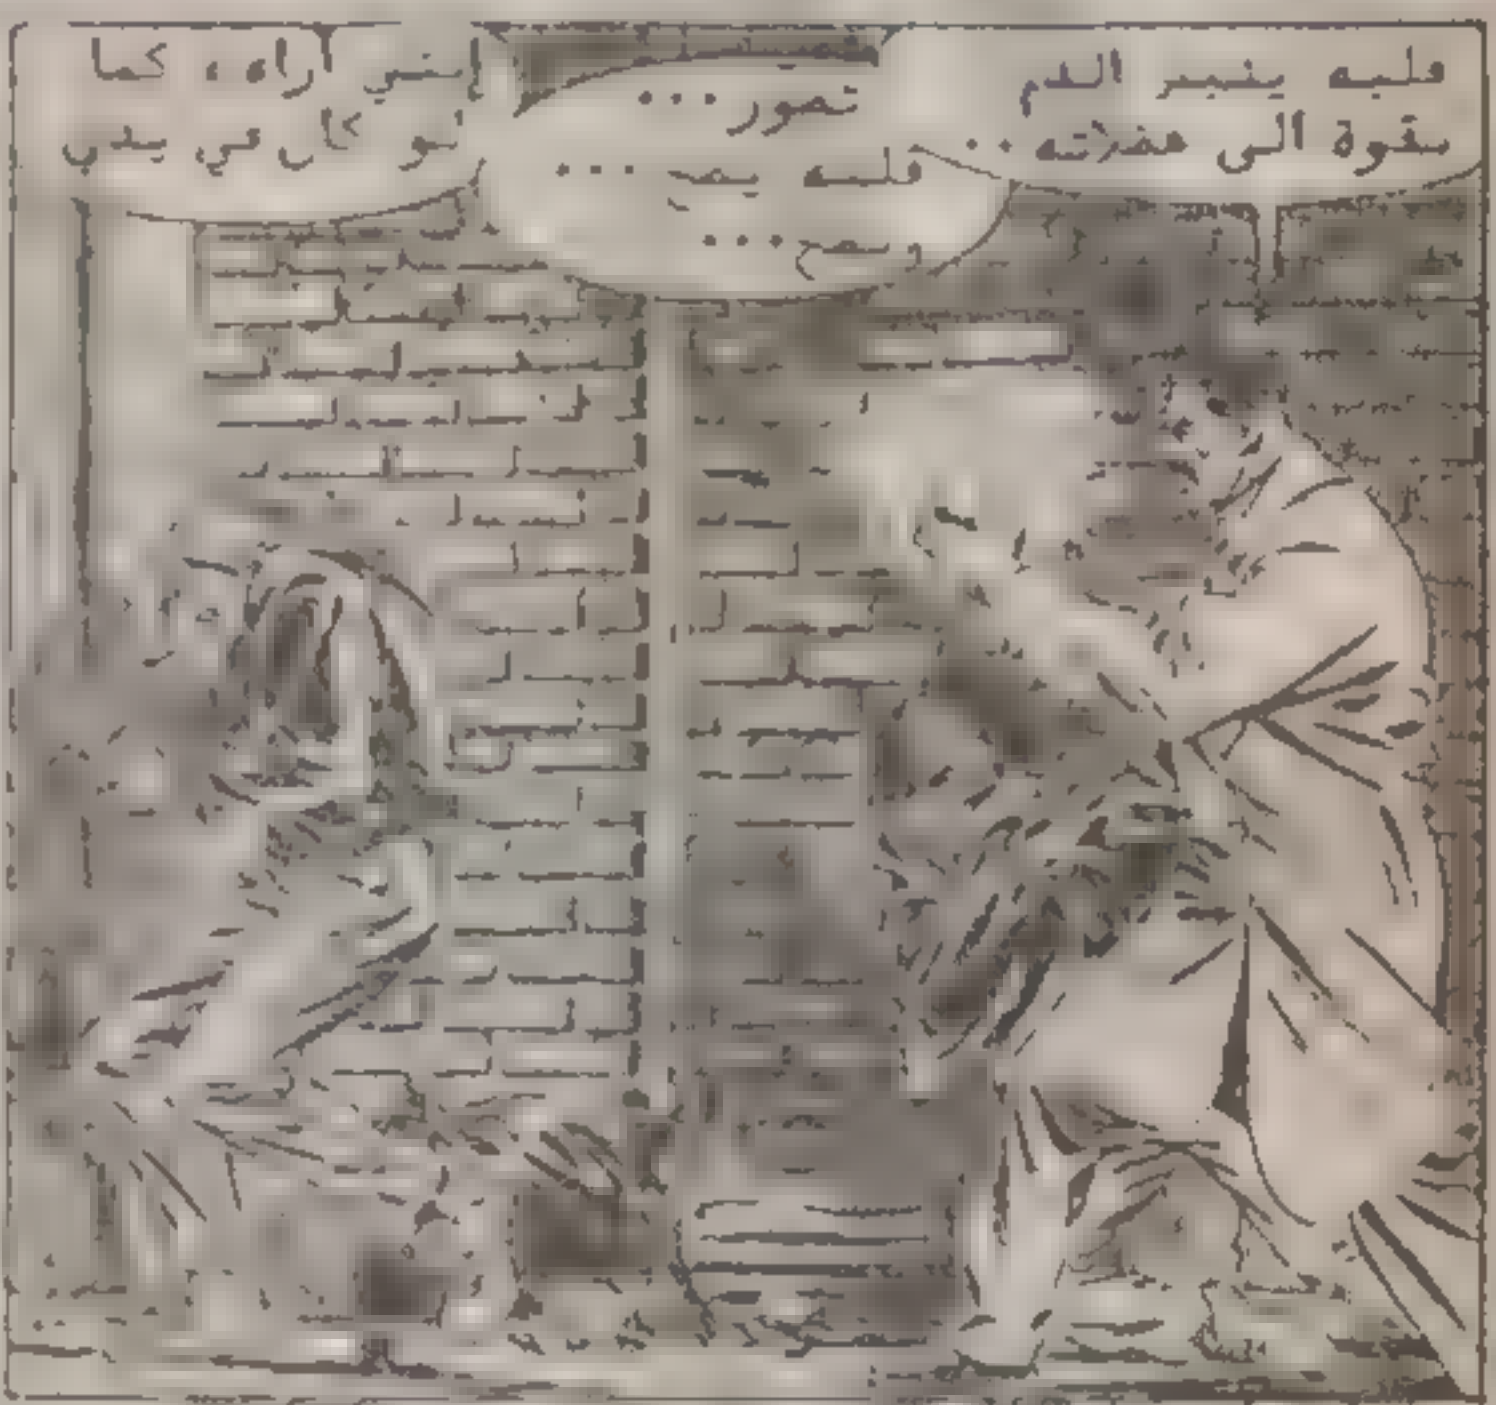 قلبه ينبض الدم
بقوة الى عضلاته ..
تصور ...
قلبه يضـ ...
إنني اراه، كما
لو كان في يدي